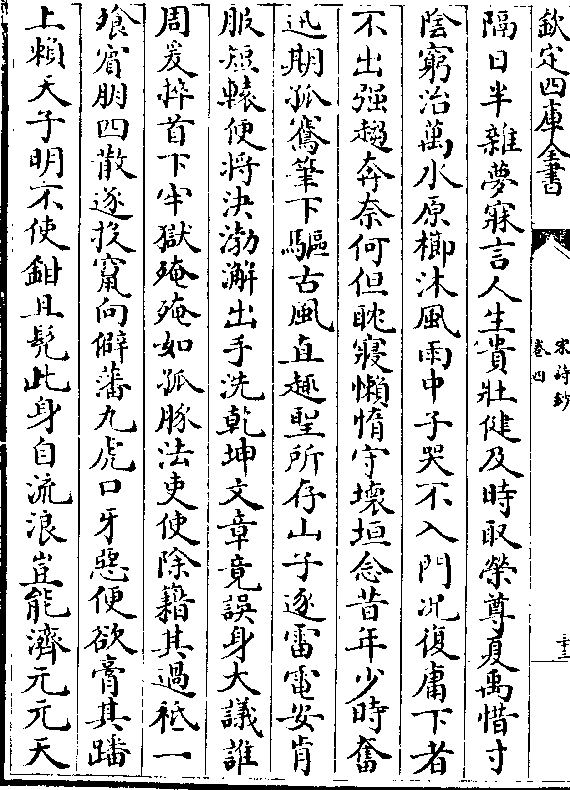 欽定四庫全書
宋詩鈔
卷四
三十三
隔日半雜夢寐言人生貴壯健及時取榮尊夏禹惜寸
陰窮治萬水原櫛沐風雨中子哭不入門況復庸下者
不出强趨奔奈何但眈寢懶惰守壞垣念昔年少時奮
迅期孤鶱筆下驅古風直趣聖所存山子逐雷電安肯
服短轅便將決渤澥出手洗乾坤文章竟誤身大議誰
周爰捽首下牢獄殗殗如孤豚法吏使除籍其過秪一
飱賔朋四散逐投竄向僻藩九虎口牙惡便欲膏其蹯
上賴天子明不使鉗且髠此身自流浪豈能濟元元天